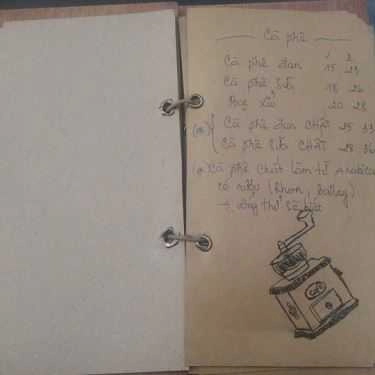 Cà phê
Cà phê đen 15 23
Cà phê sữa 18 26
Bạc xỉu 20 28
Cà phê đen CHẤT 25 33
Cà phê sữa CHẤT 28 36
Cà phê chất làm từ Arabica
có rượu (Rhum, Bailey)
→ uống thử sẽ biết
Café